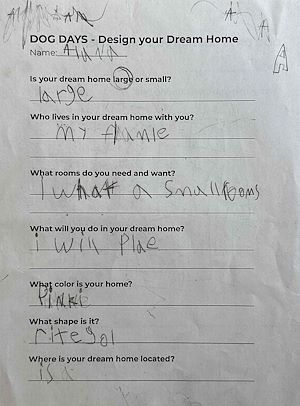 DOG DAYS - Design your Dream Home
Name: Alana
Is your dream home large or small?
large
Who lives in your dream home with you?
my famle
What rooms do you need and want?
I what a small rooms
What will you do in your dream home?
i will plae
What color is your home?
Pinki
What shape is it?
ritegol
Where is your dream home located?
is a